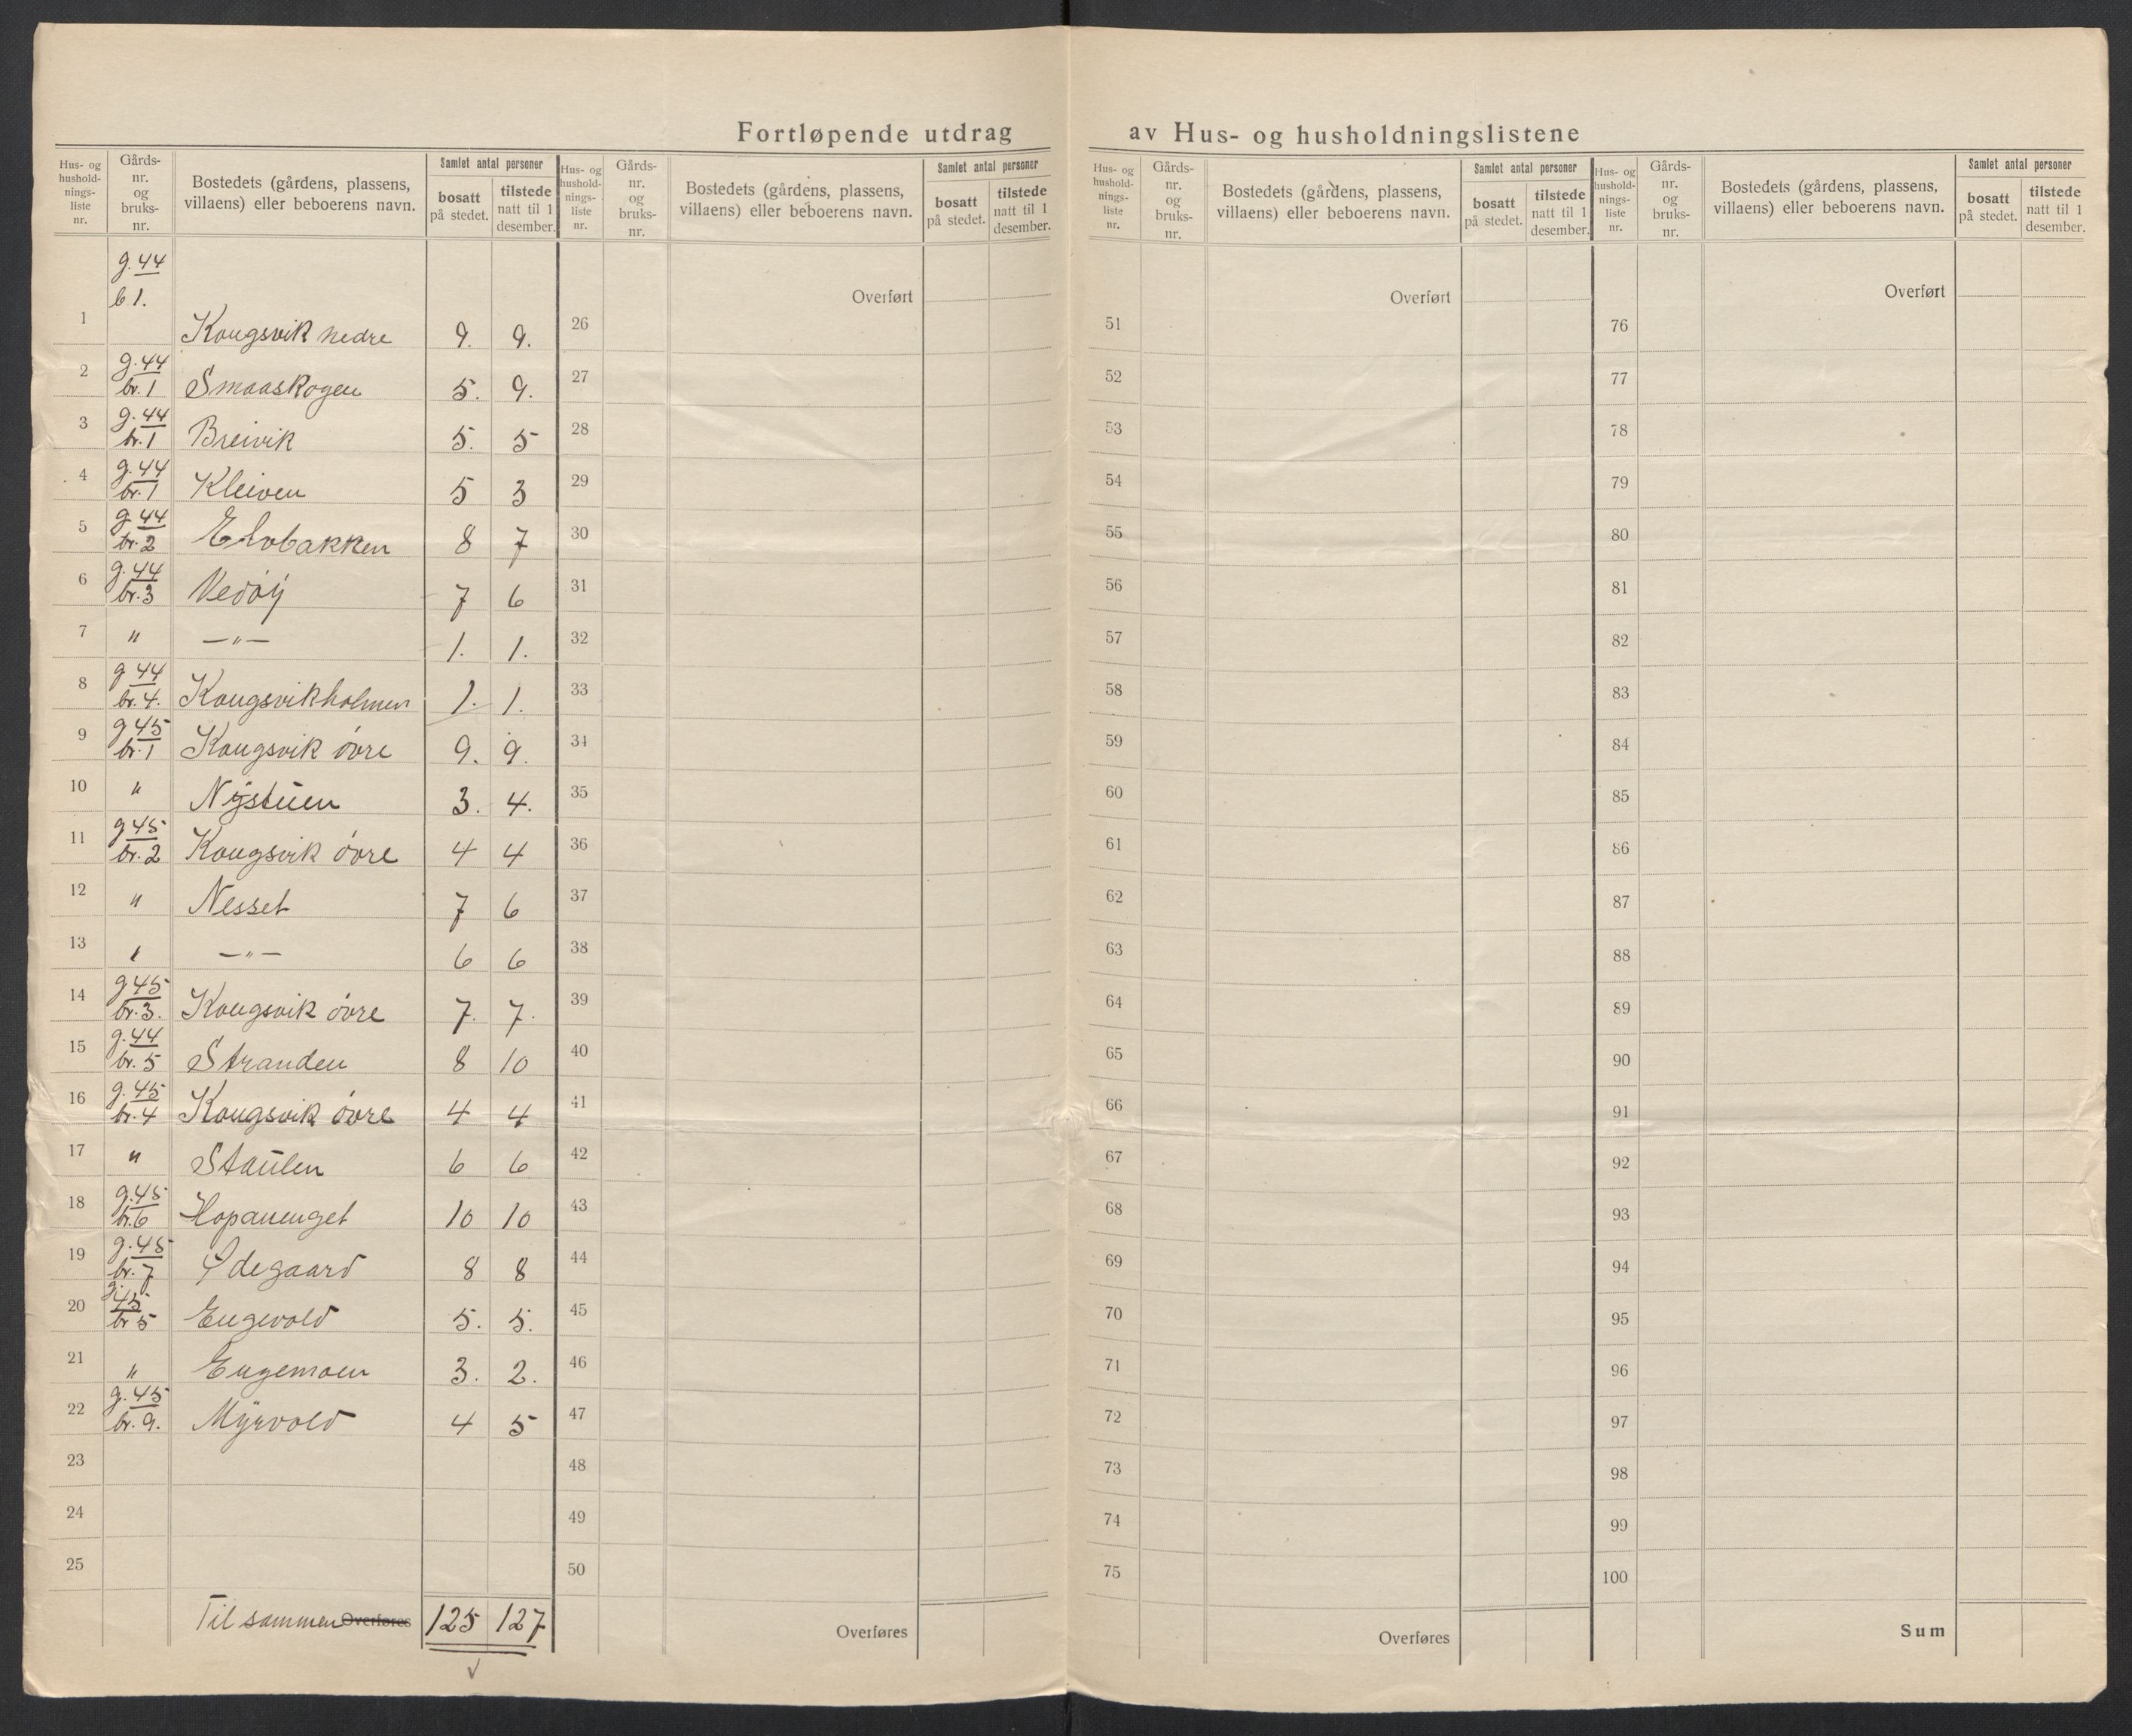 Fortløpende utdrag av Hus- og husholdningslistene
Hus- og hushold-nings-liste nr. Gårds-nr. og bruks-nr. Bostedets (gårdens, plassens, villaens) eller beboerens navn. Samlet antal personer bosatt på stedet. tilstede natt til 1 desember.
1 g. 44 b 1. Kongsvik nedre 9. 9.
2 g. 44 br. 1 Smaaskogen 5. 9.
3 g. 44 br. 1 Breivik 5. 5
4 g. 44 br. 1 Kleiven 5 3
5 g. 44 br. 2 Elvbakken 8 7
6 g. 44 br. 3 Vedöy 7 6
7 " —"— 1. 1.
8 g 44 br. 4. Kongsvikholmen 1. 1.
9 g 45 br. 1 Kongsvik övre 9. 9.
10 " Nystuen 3. 4.
11 g 45 br. 2 Kongsvik övre 4 4
12 " Nesset 7 6
13 " —"— 6 6
14 g 45 br. 3. Kongsvik övre 7. 7.
15 g. 44 br. 5 Stranden 8 10
16 g. 45 br. 4 Kongsvik övre 4 4
17 " Staulen 6 6
18 g. 45 br. 6 Hopanenget 10 10
19 g. 45 br. 7 Ödegaard 8 8
20 g. 45 br 5 Engevold 5. 5.
21 " Engemoen 3. 2.
22 g. 45 br. 9. Myrvold 4 5
23
24
25
Til sammen Overføres 125 127
Hus- og hushold-nings-liste nr. Gårds-nr. og bruks-nr. Bostedets (gårdens, plassens, villaens) eller beboerens navn. Samlet antal personer bosatt på stedet. tilstede natt til 1 desember.
Overført
26
27
28
29
30
31
32
33
34
35
36
37
38
39
40
41
42
43
44
45
46
47
48
49
50
Overføres
Hus- og hushold-nings-liste nr. Gårds-nr. og bruks-nr. Bostedets (gårdens, plassens, villaens) eller beboerens navn. Samlet antal personer bosatt på stedet. tilstede natt til 1 desember.
Overført
51
52
53
54
55
56
57
58
59
60
61
62
63
64
65
66
67
68
69
70
71
72
73
74
75
Overføres
Hus- og hushold-nings-liste nr. Gårds-nr. og bruks-nr. Bostedets (gårdens, plassens, villaens) eller beboerens navn. Samlet antal personer bosatt på stedet. tilstede natt til 1 desember.
Overført
76
77
78
79
80
81
82
83
84
85
86
87
88
89
90
91
92
93
94
95
96
97
98
99
100
Sum